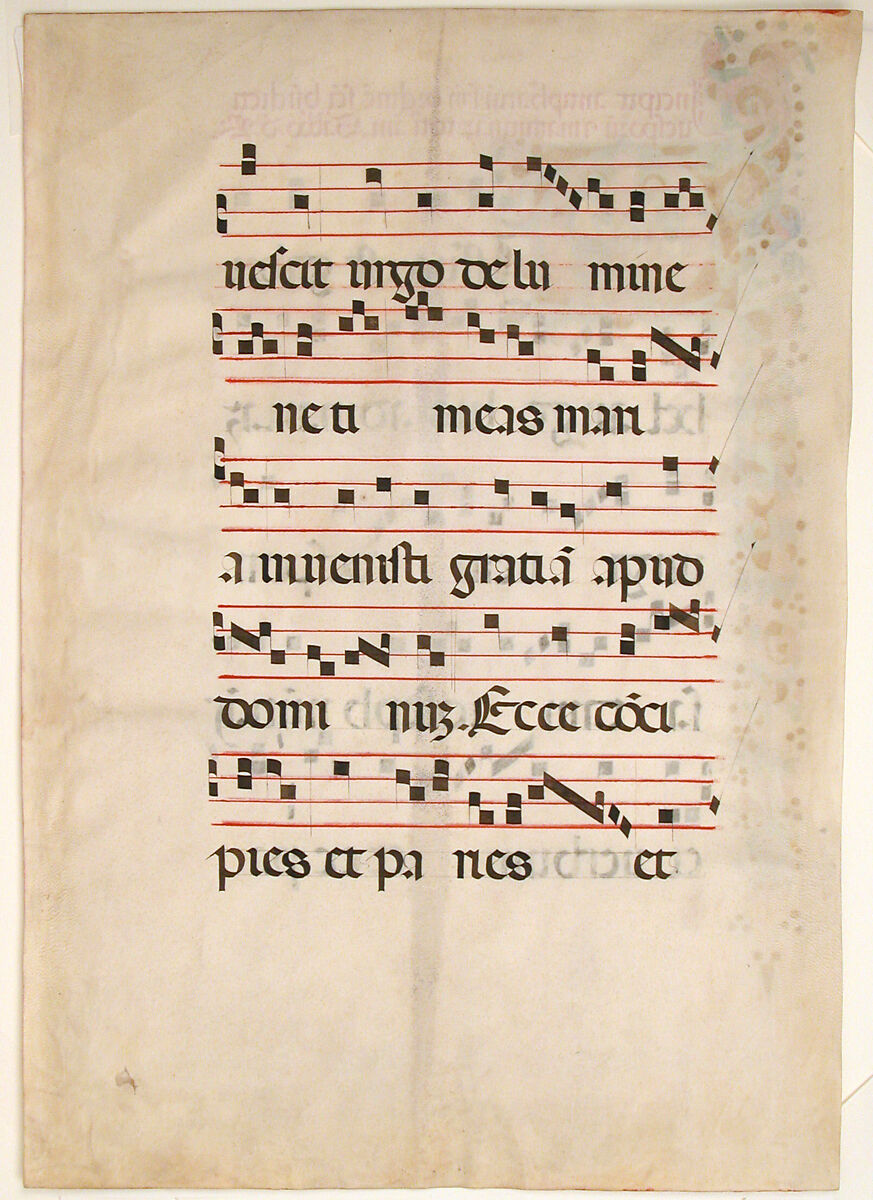 uescit uirgo de lu mine
ne ti meas mari
a inuenisti gratiã apud
domi nuʒ. Ecce cõci
pies et pa ries et